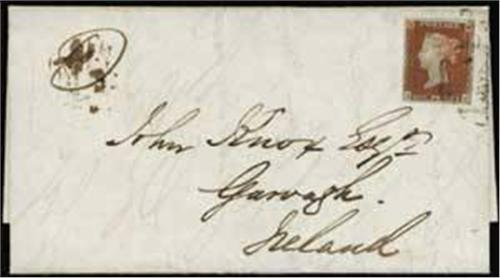 John Knox Esqr
Garvagh.
Ireland